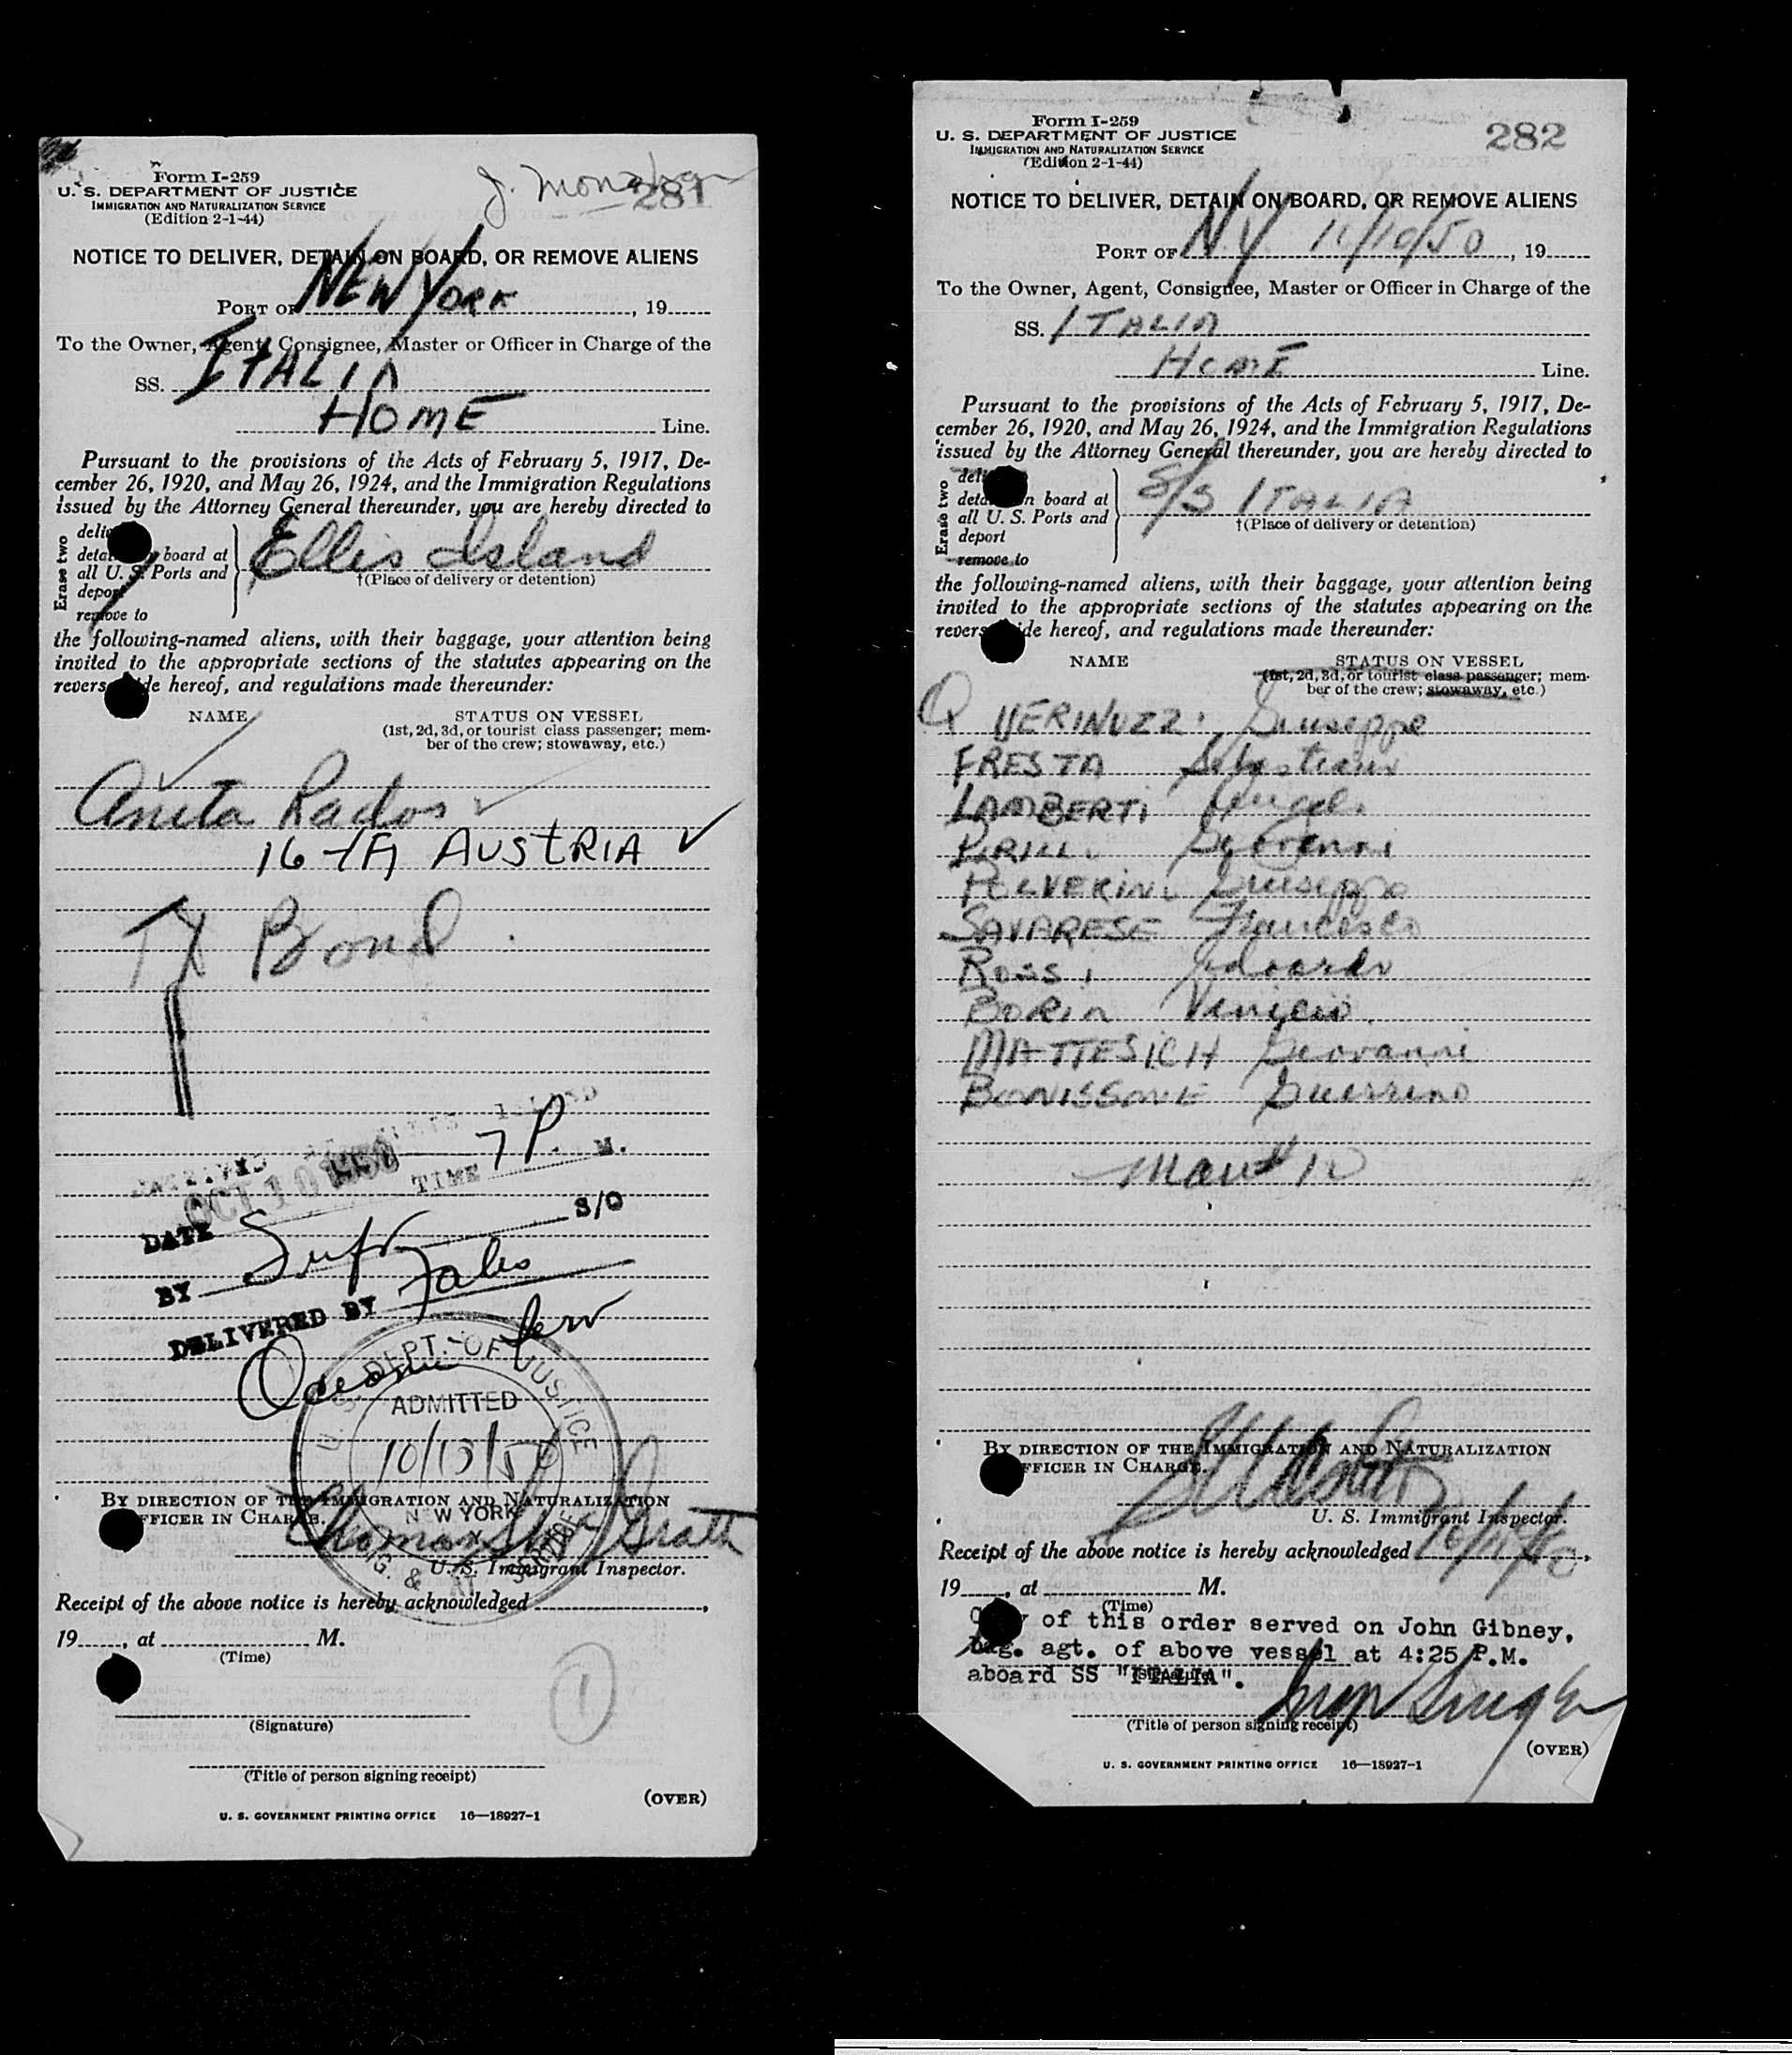 Form I-259
U. S. DEPARTMENT OF JUSTICE
IMMIGRATION AND NATURALIZATION SERVICE
(Edition 2-1-44)
281
NOTICE TO DELIVER, DETAIN ON BOARD, OR REMOVE ALIENS
PORT OF NEW YORK, 19
To the Owner, Agent, Consignee, Master or Officer in Charge of the
SS. ITALIA
HOME Line.
Pursuant to the provisions of the Acts of February 5, 1917, De-
cember 26, 1920, and May 26, 1924, and the Immigration Regulations
issued by the Attorney General thereunder, you are hereby directed to
Erase two
board at
all U. S. Ports and
deport
remove to
Ellis Island
†(Place of delivery or detention)
the following-named aliens, with their baggage, your attention being
invited to the appropriate sections of the statutes appearing on the
hereof, and regulations made thereunder:
NAME STATUS ON VESSEL
(1st, 2d, 3d, or tourist class passenger; mem-
ber of the crew; stowaway, etc.)
Anita Rados
AUSTRIA
Bond
OCT 10 1950
7 P. M.
TIME
DATE
S/O
BY
DELIVERED BY
U. S. DEPT. OF JUSTICE
ADMITTED
NEW YORK
BY DIRECTION OF THE IMMIGRATION AND NATURALIZATION
FFICER IN CHARGE.
U. S. Immigrant Inspector.
Receipt of the above notice is hereby acknowledged,
19, at M.
(Time)
1
(Signature)
(Title of person signing receipt)
(OVER)
U. S. GOVERNMENT PRINTING OFFICE 16—18927-1
Form I-259
U. S. DEPARTMENT OF JUSTICE
IMMIGRATION AND NATURALIZATION SERVICE
(Edition 2-1-44)
282
NOTICE TO DELIVER, DETAIN ON BOARD, OR REMOVE ALIENS
PORT OF N.Y., 19
To the Owner, Agent, Consignee, Master or Officer in Charge of the
SS. ITALIA
HOME Line.
Pursuant to the provisions of the Acts of February 5, 1917, De-
cember 26, 1920, and May 26, 1924, and the Immigration Regulations
issued by the Attorney General thereunder, you are hereby directed to
Erase two
n board at
all U. S. Ports and
deport
remove to
S/S ITALIA
†(Place of delivery or detention)
the following-named aliens, with their baggage, your attention being
invited to the appropriate sections of the statutes appearing on the
hereof, and regulations made thereunder:
NAME STATUS ON VESSEL
(1st, 2d, 3d, or tourist class passenger; mem-
ber of the crew; stowaway, etc.)
Giuseppe
FRESTA
LAMBERTI
Giovanni
Giuseppe
SAVARESE Francesco
ROSSI Edoardo
BORIN Vinicio
MATTESICH Giovanni
BONISSONE Guerrino
BY DIRECTION OF THE IMMIGRATION AND NATURALIZATION
FFICER IN CHARGE.
U. S. Immigrant Inspector.
Receipt of the above notice is hereby acknowledged,
19, at M.
(Time)
of this order served on John Gibney,
agt. of above vessel at 4:25 P.M.
aboard SS "ITALIA".
(Title of person signing receipt)
(OVER)
U. S. GOVERNMENT PRINTING OFFICE 16—18927-1